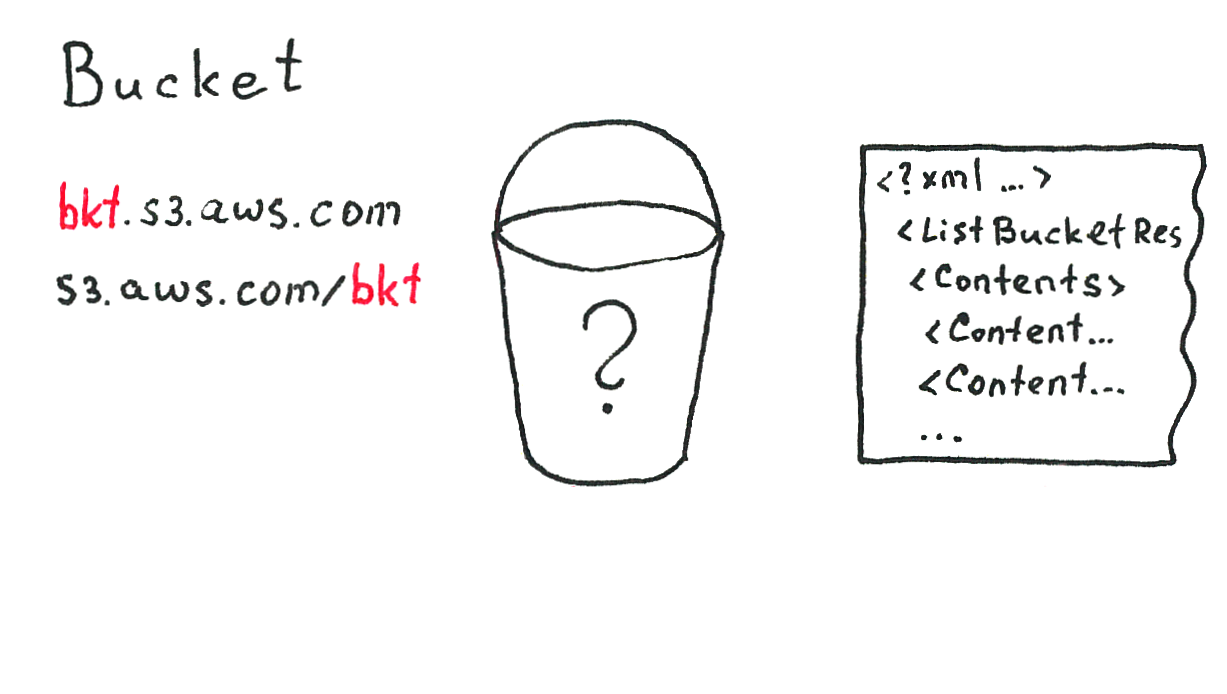 Bucket
bkt.s3.aws.com
s3.aws.com/bkt
?
<?xml ...>
<ListBucketRes
<Contents>
<Content...
<Content...
...